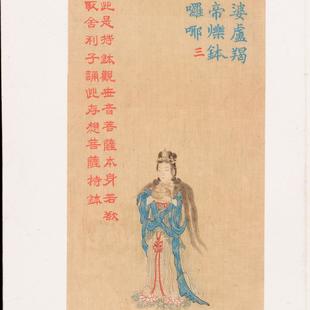 婆盧羯
帝爍鉢
囉哪三
此是持鉢觀世音菩薩本身若欲
取舍利子誦此存想菩薩持鉢